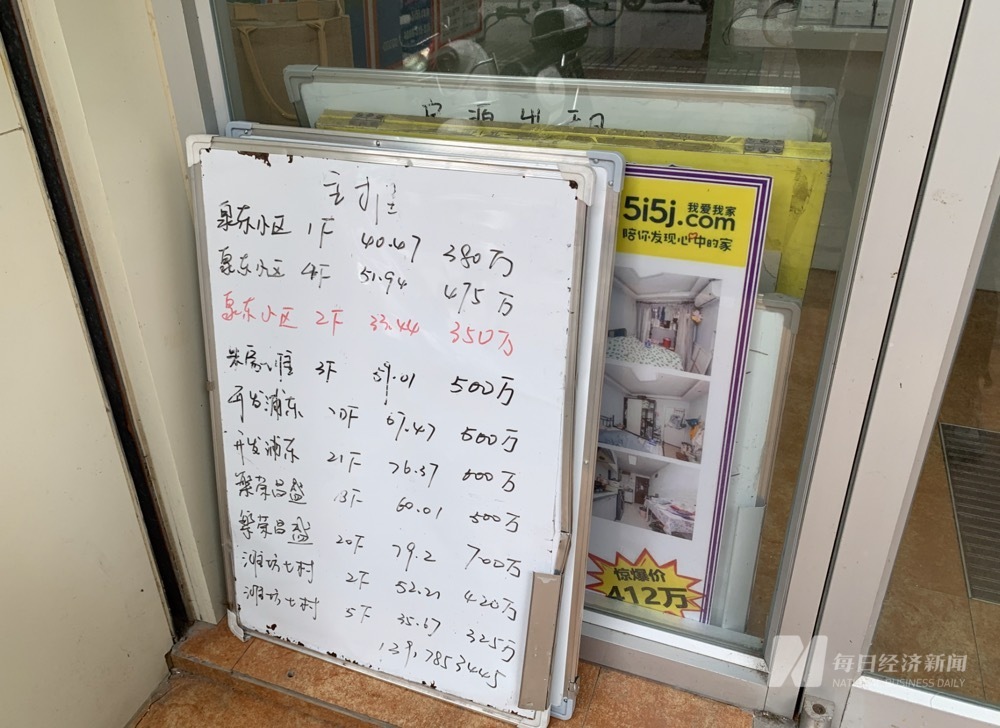 房源出租
主推
泉东小区 1F 40.47 380万
泉东小区 4F 51.94 475万
泉东小区 2F 33.44 350万
朱家滩 3F 59.01 500万
开发浦东 10F 67.47 500万
开发浦东 21F 76.37 600万
繁荣昌盛 13F 60.01 500万
繁荣昌盛 20F 79.2 700万
潍坊七村 2F 52.21 420万
潍坊七村 5F 35.67 325万
13917853445
5i5j.com
我爱我家
陪你发现心中的家
惊爆价
412万
每日经济新闻
NATIONAL BUSINESS DAILY